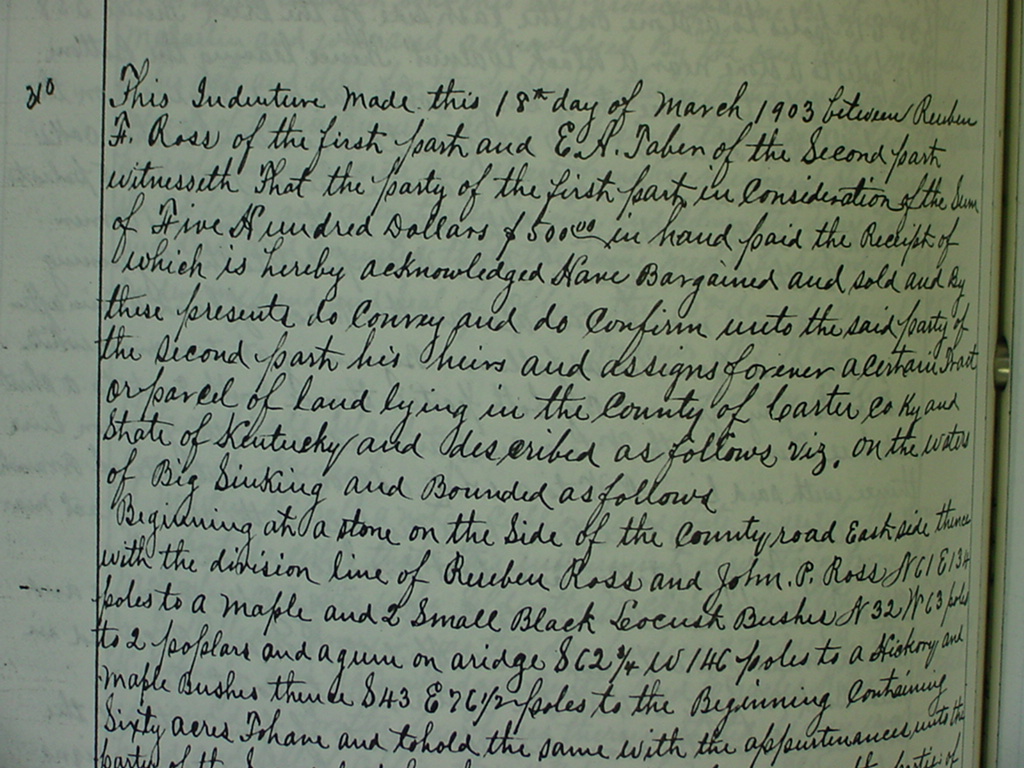 210
This Indenture Made this 18th day of March 1903 between Reuben
F. Ross of the first part and E. A. Taben of the Second part
witnesseth That the party of the first part, in Consideration of the Sum
of Five Hundred Dollars $500.00 in hand paid the Receipt of
which is hereby acknowledged Have Bargained and sold and By
these presents do Convey and do Confirm unto the said party of
the second part his heirs and assigns forever a certain Tract
or parcel of land lying in the County of Carter Co Ky and
State of Kentucky and described as follows, viz, on the waters
of Big Sinking and Bounded as follows
Beginning at a stone on the Side of the County road East side thence
with the division line of Reuben Ross and John. P. Ross N 61 E 134
poles to a Maple and 2 Small Black Locust Bushes N 32 W 63 poles
to 2 poplars and a gum on a ridge S 62 3/4 W 146 poles to a Hickory and
Maple Bushes thence S 43 E 76 1/2 poles to the Beginning Containing
Sixty acres To have and to hold the same with the appurtenances unto the
party of the